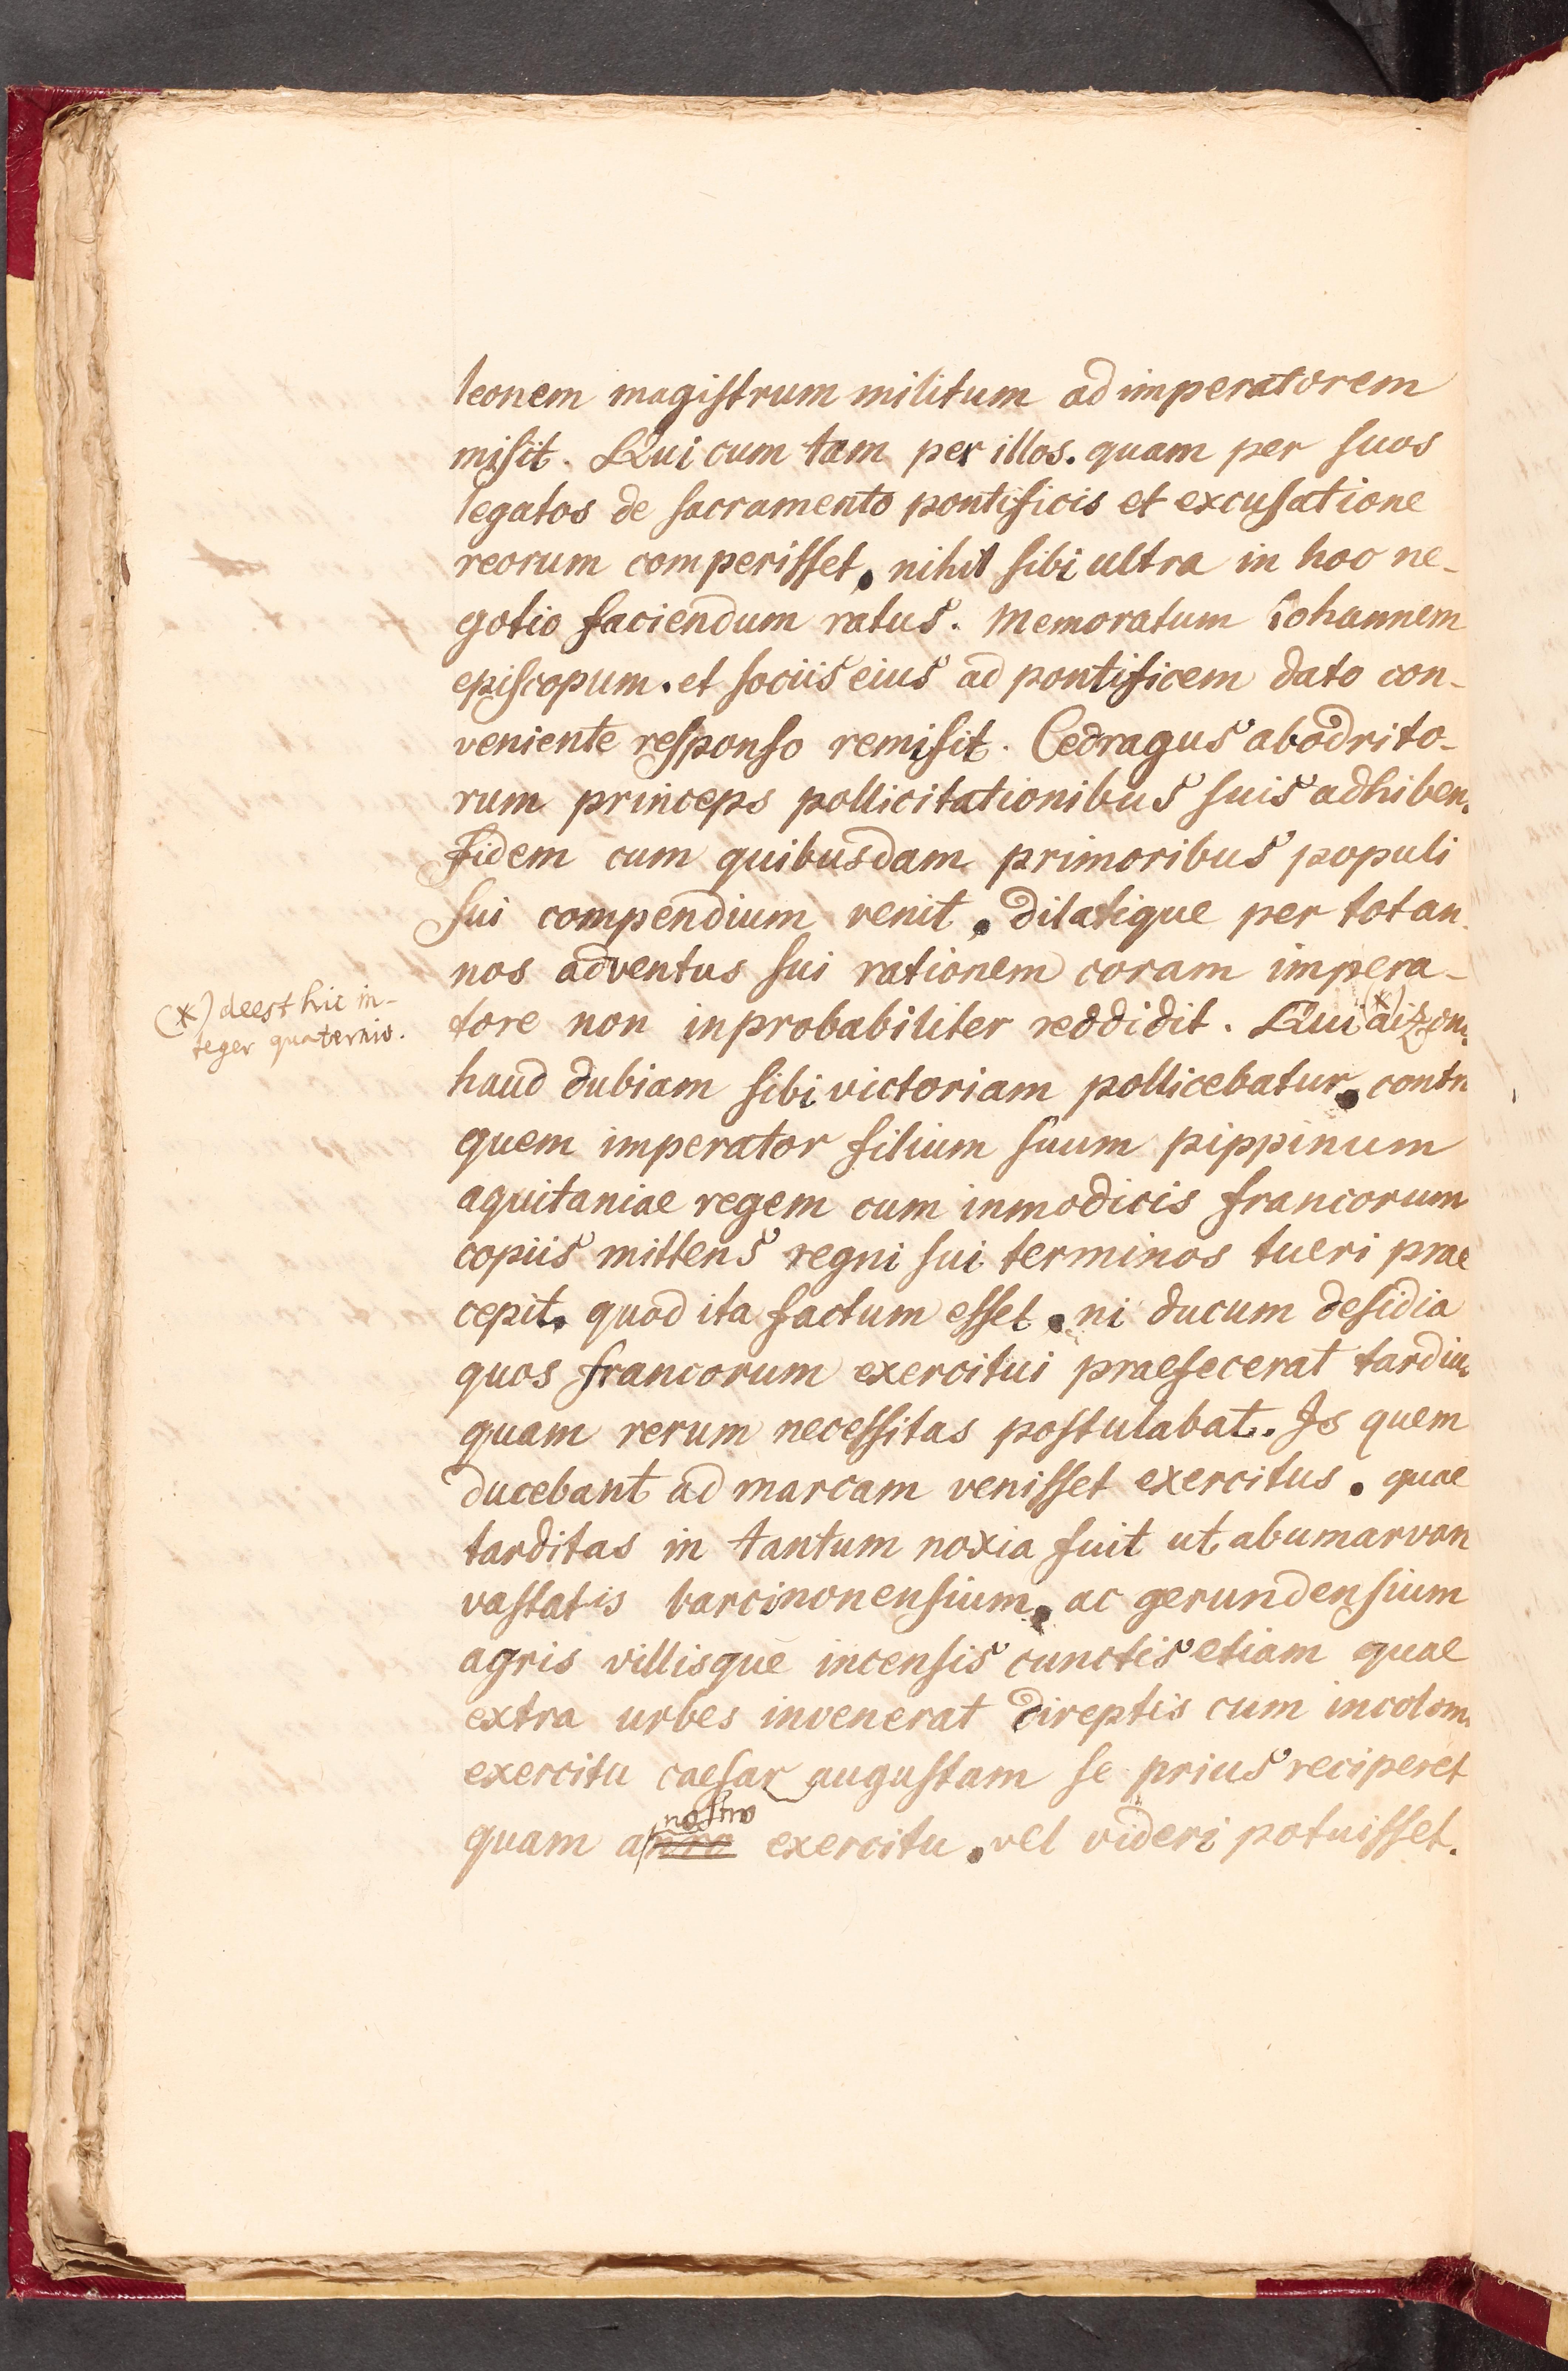 leonem magistrum militum ad imperatorem
misit. Qui cum tam per illos. quam per suos
legatos de sacramento pontificis et excusatione
reorum comperisset. nihil sibi ultra in hoc ne-
gotio faciendum ratus. Memoratum iohannem
episcopum. et sociis eius ad pontificem dato con-
veniente responso remisit. Cedragus abodrito-
rum princeps pollicitationibus suis adhiben
fidem cum quibusdam primoribus populi
sui compendium venit. dilatique per tot an
nos adventus sui rationem coram impera-
(*) deest hic in-
teger quaternio.
tore non inprobabiliter reddidit. Qui (*) aizon
haud dubiam sibi victoriam pollicebatur. contr
quem imperator filium suum pippinum
aquitaniae regem cum inmodicis francorum
copiis mittens regni sui terminos tueri prae
cepit. quod ita factum esset. ni ducum desidia
quos francorum exercitui praefecerat tardiu
quam rerum necessitas postulabat. Is quem
ducebant ad marcam venisset exercitus. quae
tarditas in tantum noxia fuit ut abumarvan
vastatis barcinonensium. ac gerundensium
agris villisque incensis cunctis etiam quae
extra urbes invenerat direptis cum incolom
exercitu caesar augustam se prius reciperet
nostro
quam a nro exercitu. vel videri potuisset.